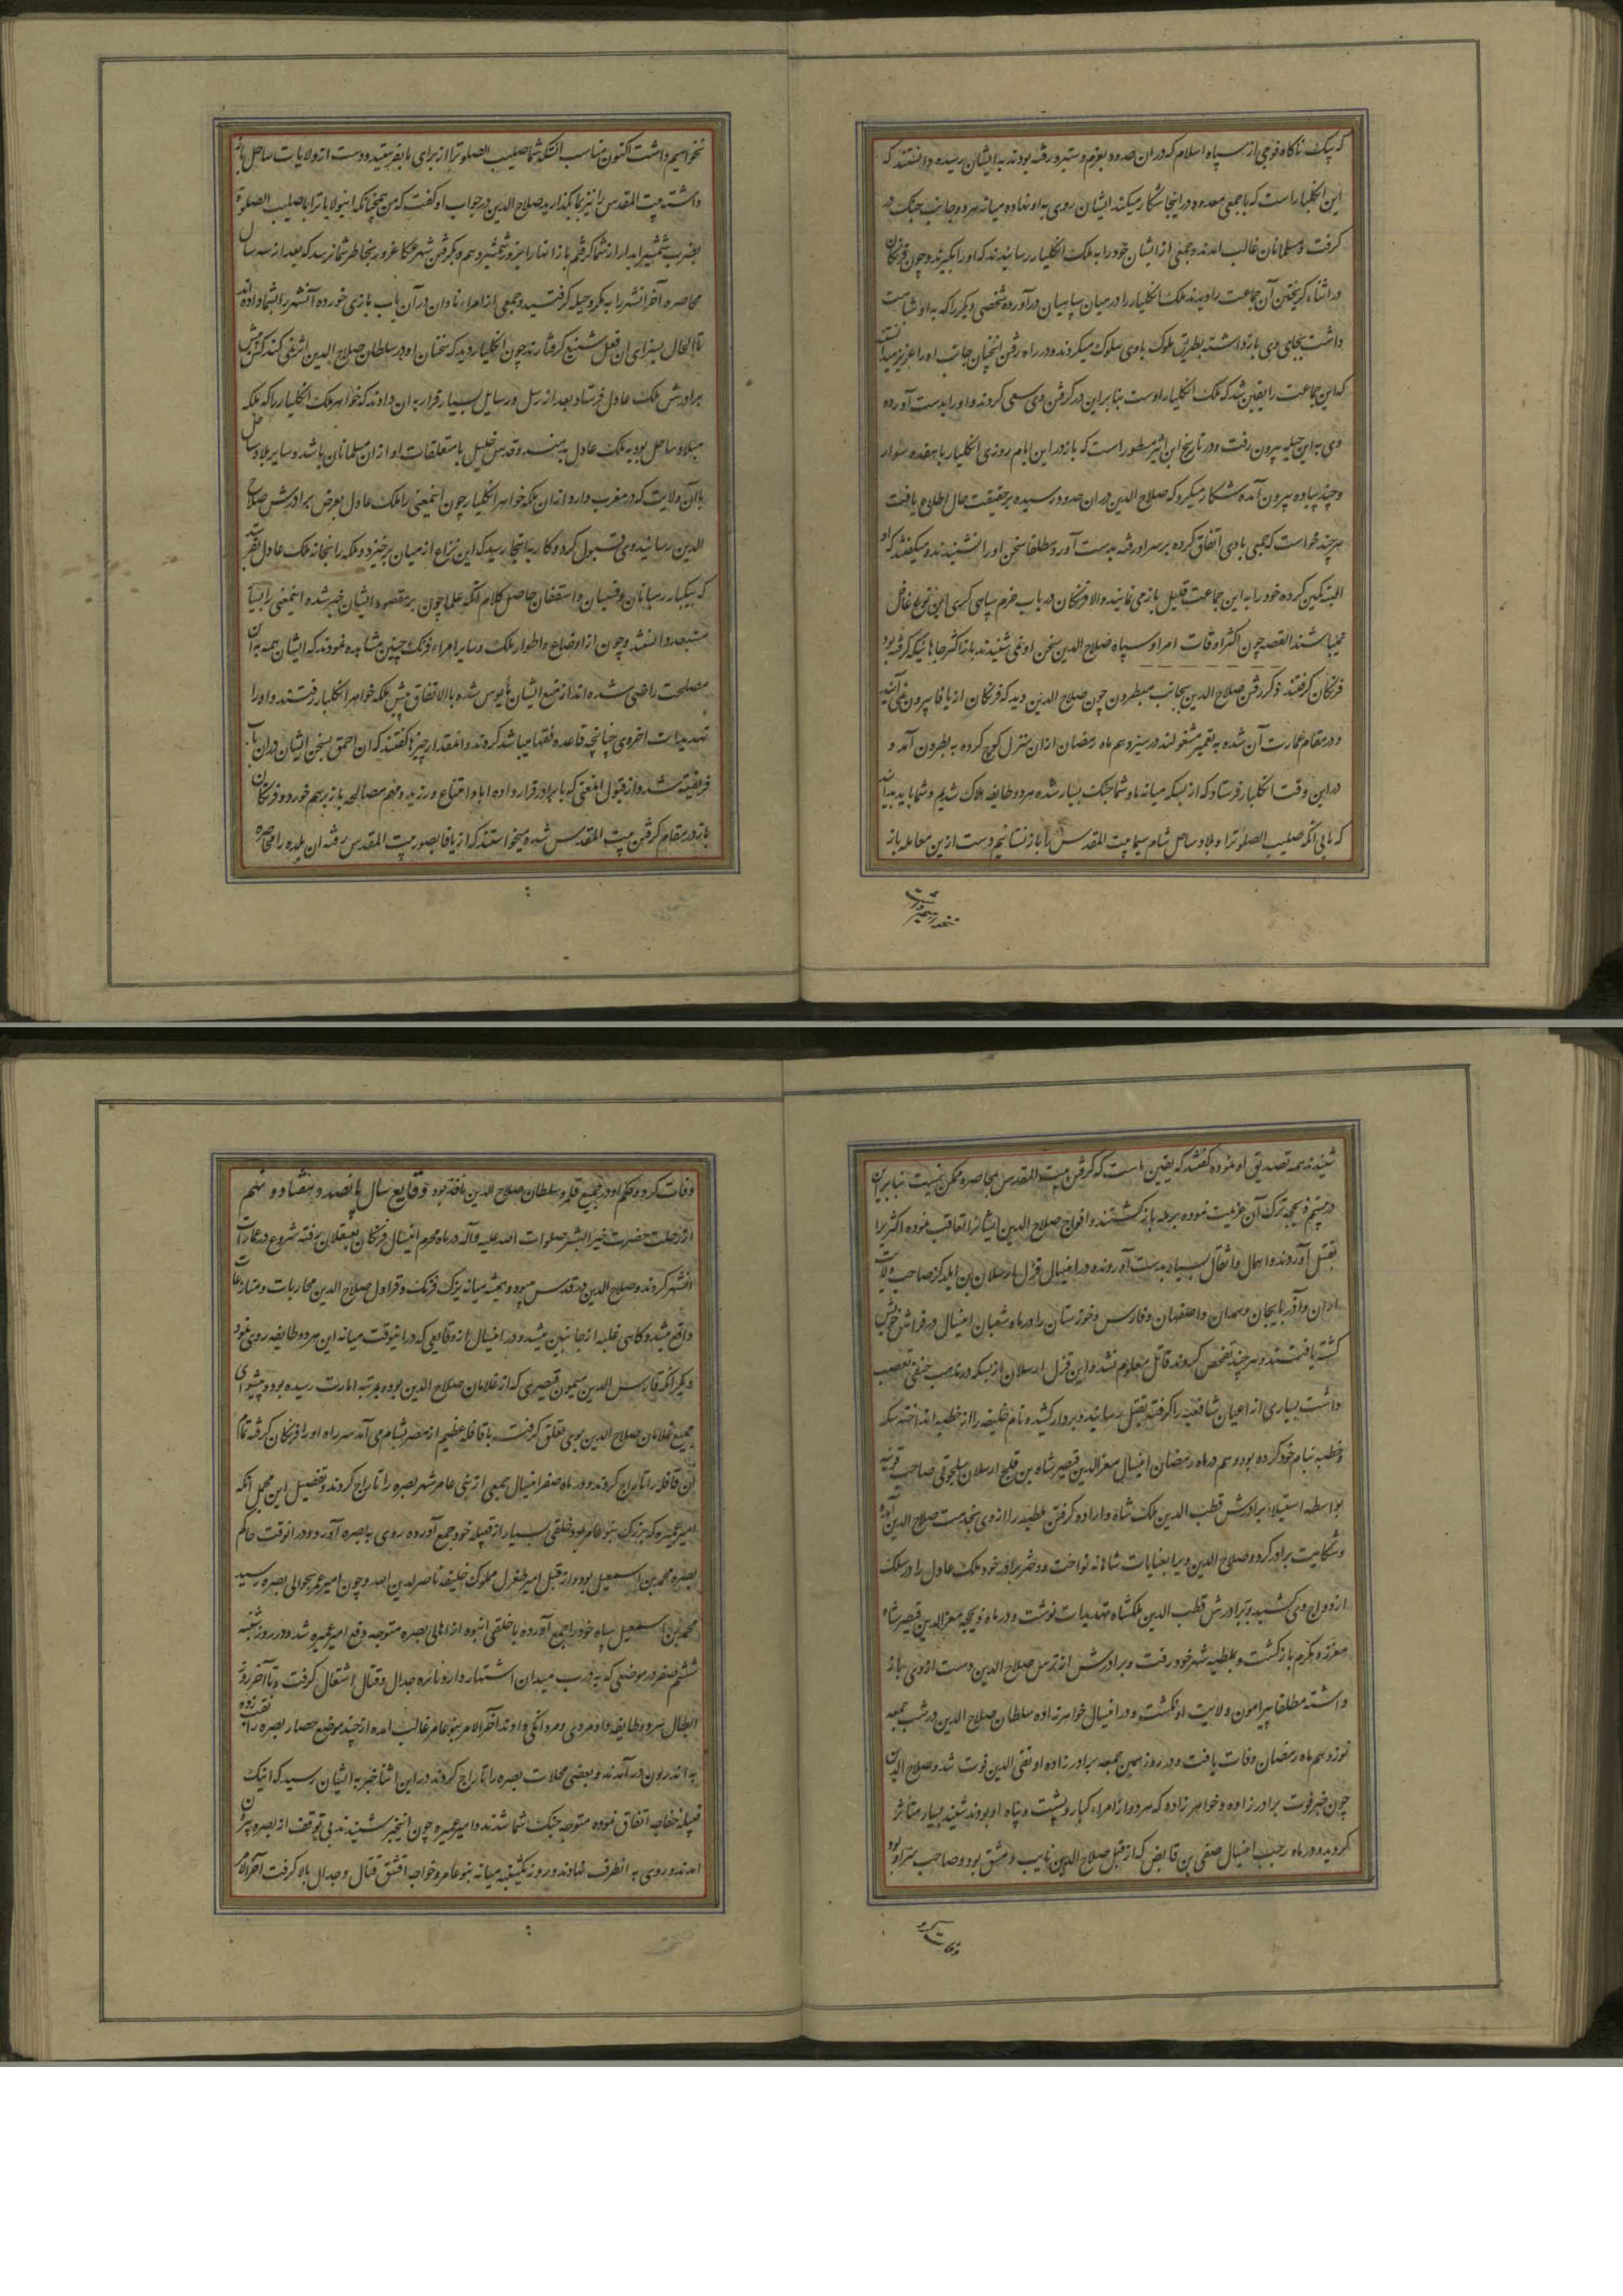 که یک ناگاه فوجی از سپاه اسلام که در ان حدود بعزم دستبرد رفته بودند به ایشان رسیده دانستند که
این انکلیار است که با جمعی معدود در اینجا شکار میکند ایشان روی به او نهاده میانه هر دو جانب جنک در
کرفت و مسلمانان غالب امدند و جمعی از ایشان خود را به ملک انکلیار رسانیدند که او را بکیرند و چون فرنکان
در اثناء کریختن آن جماعت را دیدند ملک انکلیار را در میان سپاهیان در آورده شخصی دیکر را که به او شباهت
داشت بجای وی باز داشته بطریق ملوک با وی سلوک میکردند و در راه رفتن انچنان جانب او را عزیز میداشتند
که این جماعت را یقین شد که ملک انکلیار اوست بنابراین در کرفتن وی سعی کردند و او را بدست آورده
وی به این حیله بیرون رفت و در تاریخ ابن اثیر مسطور است که باز در این ایام روزی انکلیار با هفده سوار
و چند پیاده بیرون آمده شکار میکرد که صلاح الدین در ان حدود رسیده بر حقیقت حال اطلاع یافت
هر چند خواست که جمعی با وی اتفاق کرده بر سر او رفته بدست آورد مطلقا سخن او را نشنیدند و میکفتند که او
البته کمین کرده خود را به این جماعت قلیل باز می نمایند والا فرنکان در باب حزم سپاهی کری این نوع غافل
نمیباشند القصه چون اکثر اوقات امرا و سپاه صلاح الدین سخن او نمی شنیدند باز اکثر جاها ئیکه کرفته بود
فرنکان کرفتند ذکر رفتن صلاح الدین بجانب بطرون چون صلاح الدین دید که فرنکان از یافا بیرون نمی آیند
و در مقام عمارت آن شده به تعمیر مشغولند در سیزدهم ماه رمضان از ان منزل کوچ کرده به بطرون آمد و
در این وقت انکلیار فرستاد که از بسکه میانه ما و شما جنک بسیار شده هر دو طایفه هلاک شدیم و شما باید بدانید
که ما بی انکه صلیب الصلوترا و بلاد ساحل شام سیما بیت المقدس را باز نستانیم دست ازین معامله باز
نخواهیم داشت
نخواهیم داشت اکنون مناسب انستکه شما صلیب الصلوترا از برای ما بفرستید و دست از ولایات ساحل باز
داشته بیت المقدس را نیز بما بکذارید صلاح الدین در جواب او کفت که من همچنانکه اینولایاترا با صلیب الصلوة
بضرب شمشیر ابدار از شما کرفتم باز انها را نیز بشمشیر دهم و بکرفتن شهر عکا غرور بخاطر شما نرسد که بعد از سه سال
محاصره آخر انشهر را به مکر و حیله کرفتید و جمعی از امراء نادان در آن باب بازی خورده آنشهر را بشما داده اند
تا الحال بسزای ان فعل شنیع کرفتارند چون انکلیار دید که سخنان او در سلطان صلاح الدین اثر نمی کند کس پیش
برادرش ملک عادل فرستاد بعد از رسل و رسایل بسیار قرار به ان دادند که خواهر ملک انکلیار را که ملکه
بلاد ساحل بود به ملک عادل بدهند و قدس خلیل با متعلقات او از ان مسلمانان باشد و سایر بلاد ساحل
با آن ولایت که در مغرب دارد از ان ملکه خواهر انکلیار چون اینمعنی را ملک عادل بعرض برادرش صلاح
الدین رسانید وی قبول کرد و کار به اینجا رسید که این نزاع از میان برخیزد و ملکه را بخانه ملک عادل بفرستد
که بیکبار رهبانان و قسیسان و اسقفان حاصل کلام انکه علما چون بر مقصود ایشان خبر شده اینمعنی را بسیار
مستبعد دانستند و چون از اوضاع و اطوار ملک و سایر امراء فرنک چنین مشاهده نمودند که ایشان همه به آن
مصلحت راضی شده اند از منع ایشان مأیوس شده بالاتفاق پیش ملکه خواهر انکلیار رفتند و او را
تهدیدات اخروی چنانچه قاعده فقها میباشد کردند و انمقدار چیزها کفتند که ان احمق بسخن ایشان در ان باب
فریفته شد و از قبول انمعنی که با برادر قرار داده ابا و امتناع ورزید و مهم مصالحه باز برهم خورد و فرنکان
باز در مقام کرفتن بیت المقدس شده میخواستند که از یافا بصوب بیت المقدس رفته ان بلده را محاصره
شنیدند همه تصدیق او نموده کفتند که یقین ماست که کرفتن بیت المقدس بمحاصره ممکن نیست بنا بر این
در بیستم ذیحجه ترک آن عزیمت نموده برمله باز کشتند و افواج صلاح الدین ایشانرا تعاقب نموده اکثریرا
بقتل آوردند و احمال و اثقال بسیار بدست آوردند و در اینسال قزل ارسلان بن ایلدکز صاحب ولایت
اران و آذربایجان و همدان و اصفهان و فارس و خوزستان را در ماه شعبان اینسال در فراش خویش
کشته یافتند و هر چند تفحص کردند قاتل معلوم نشد و این قزل ارسلان از بسکه در مذهب حنفی تعصب
داشت بسیاری از اعیان شافعیه را کرفته بقتل رسانیده بردار کشیده و نام خلیفه را از خطبه انداخته سکه
و خطبه بنام خود کرده بود و هم در ماه رمضان اینسال معز الدین قیصر شاه بن قلیج ارسلان سلجوقی صاحب قونیه
بواسطه استیلاء برادرش قطب الدین ملک شاه و اراده کرفتن ملطیه را از وی بخدمت صلاح الدین آمده
و شکایت برادر کرد و صلاح الدین ویرا بعنایات شاهانه نواخت و دختر برادر خود ملک عادل را در سلک
ازدواج وی کشید و ببرادرش قطب الدین ملکشاه تهدیدات نوشت و در ماه ذیحجه معز الدین قیصر شاه
معزز و مکرم باز کشت و بملطیه شهر خود رفت و برادرش از ترس صلاح الدین دست از وی باز
داشته مطلقا پیرامون ولایت او نکشت و در اینسال خواهرزاده سلطان صلاح الدین در شب جمعه
نوزدهم ماه رمضان وفات یافت و در روز همین جمعه برادر زاده او تقی الدین فوت شد و صلاح الدین
چون خبر فوت برادر زاده و خواهر زاده که هر دو از امراء کبار و پشت و پناه او بودند شنید بسیار متاثر
کردید و در ماه رجب اینسال صفی بن قابض که از قبل صلاح الدین نایب دمشق بود و صاحب سر او بود
وفات کرد
وفات کرد و حکم او در جمیع قلمرو سلطان صلاح الدین نافذ بود وقایع سال پانصد و هفتاد و نهم
از رحلت حضرت خیر البشر صلوات الله علیه و آله در ماه محرم اینسال فرنکان بعسقلان رفته شروع در عمارت
انشهر کردند و صلاح الدین در قدس میبود و همیشه میانه یزک فرنک و قراول صلاح الدین محاربات و منازعات
واقع میشد و کاهی غلبه از جانبین میشد و در اینسال از وقایعی که در اینوقت میانه این هر دو طایفه روی نمود
دیکر انکه فارس الدین میمون قیصری که از غلامان صلاح الدین بود و بمرتبه امارت رسیده بود و پیشوای
جمیع غلامان صلاح الدین بوی تعلق کرفت با قافله عظیم از مصر بشام می آمد سر راه او را فرنکان کرفته تمام
ان قافله را تاراج کردند و در ماه صفر اینسال جمعی از بنی عامر شهر بصره را تاراج کردند و تفصیل این مجمل آنکه
امیر عمیره که بزرک بنو عامر بود خلقی بسیار از قبیله خود جمع آورده روی به بصره آورد و در انوقت حاکم
بصره محمد بن اسمعیل بود و از قبل امیر طغرل مملوک خلیفه ناصر لدین الله و چون امیر عمیره بحوالی بصره رسید
محمد بن اسمعیل سپاه خود را جمع آورده با خلقی انبوه از اهالی بصره متوجه دفع امیر عمیره شد و در روز شنبه
ششم صفر در موضعی که بدرب میدان اشتهار دارد نائره جدال و قتال اشتعال کرفت و تا آخر روز
ابطال هر دو طایفه داد مردی و مردانکی دادند آخر الامر بنو عامر غالب امده از چند موضع حصار بصره را نقب زده
به اندرون در آمدند و بعضی محلات بصره را تاراج کردند در این اثنا خبر به ایشان رسید که اینک
قبیله خفاجه اتفاق نموده متوجه جنک شما شدند و امیر عمیره چون اینخبر شنیدند بی توقف از بصره بیرون
امدند و روی به انطرف نهادند و روز یکشنبه میانه بنو عامر و خفاجه آتش قتال و جدال بالا کرفت آخر الامر